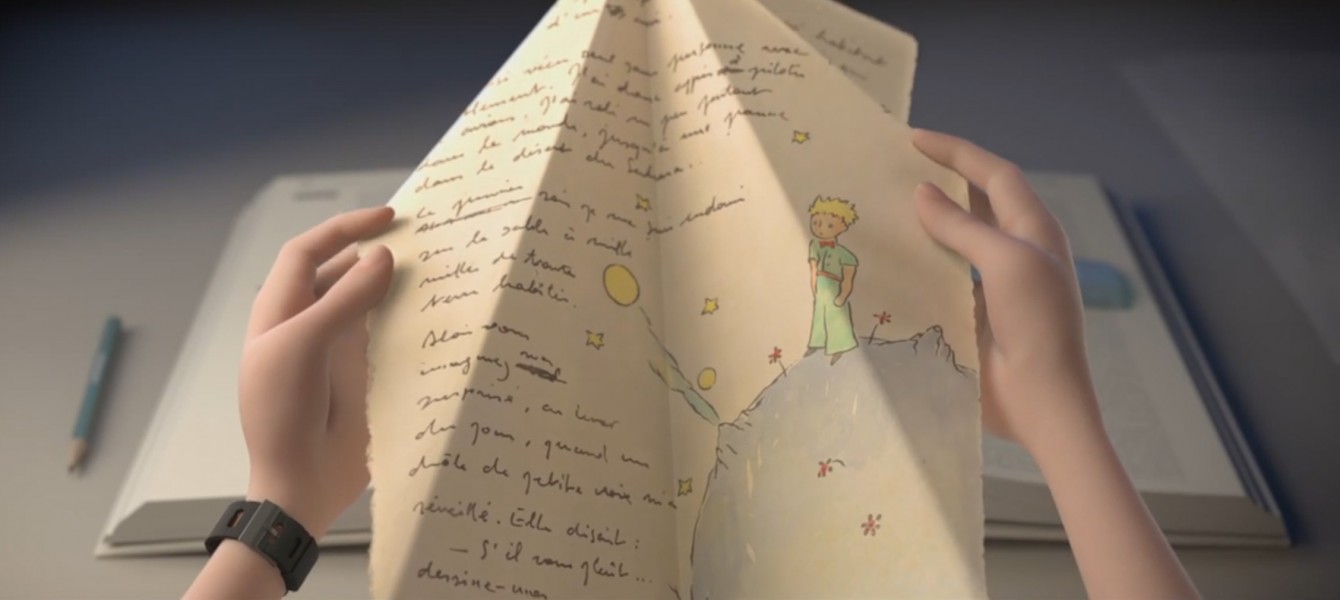 d'un
vécu seul sans personne avec
J'ai donc appris à piloter
avions. J'ai volé un peu partout
dans le monde, jusqu'à une panne
dans le désert du Sahara...
Le premier soir je me suis endormi
sur le sable à mille
milles de toute
terre habitée.
Alors vous
imaginez ma
surprise, au lever
du jour, quand une
drôle de petite voix m'a
réveillé. Elle disait :
— S'il vous plaît...
dessine-moi
habitent